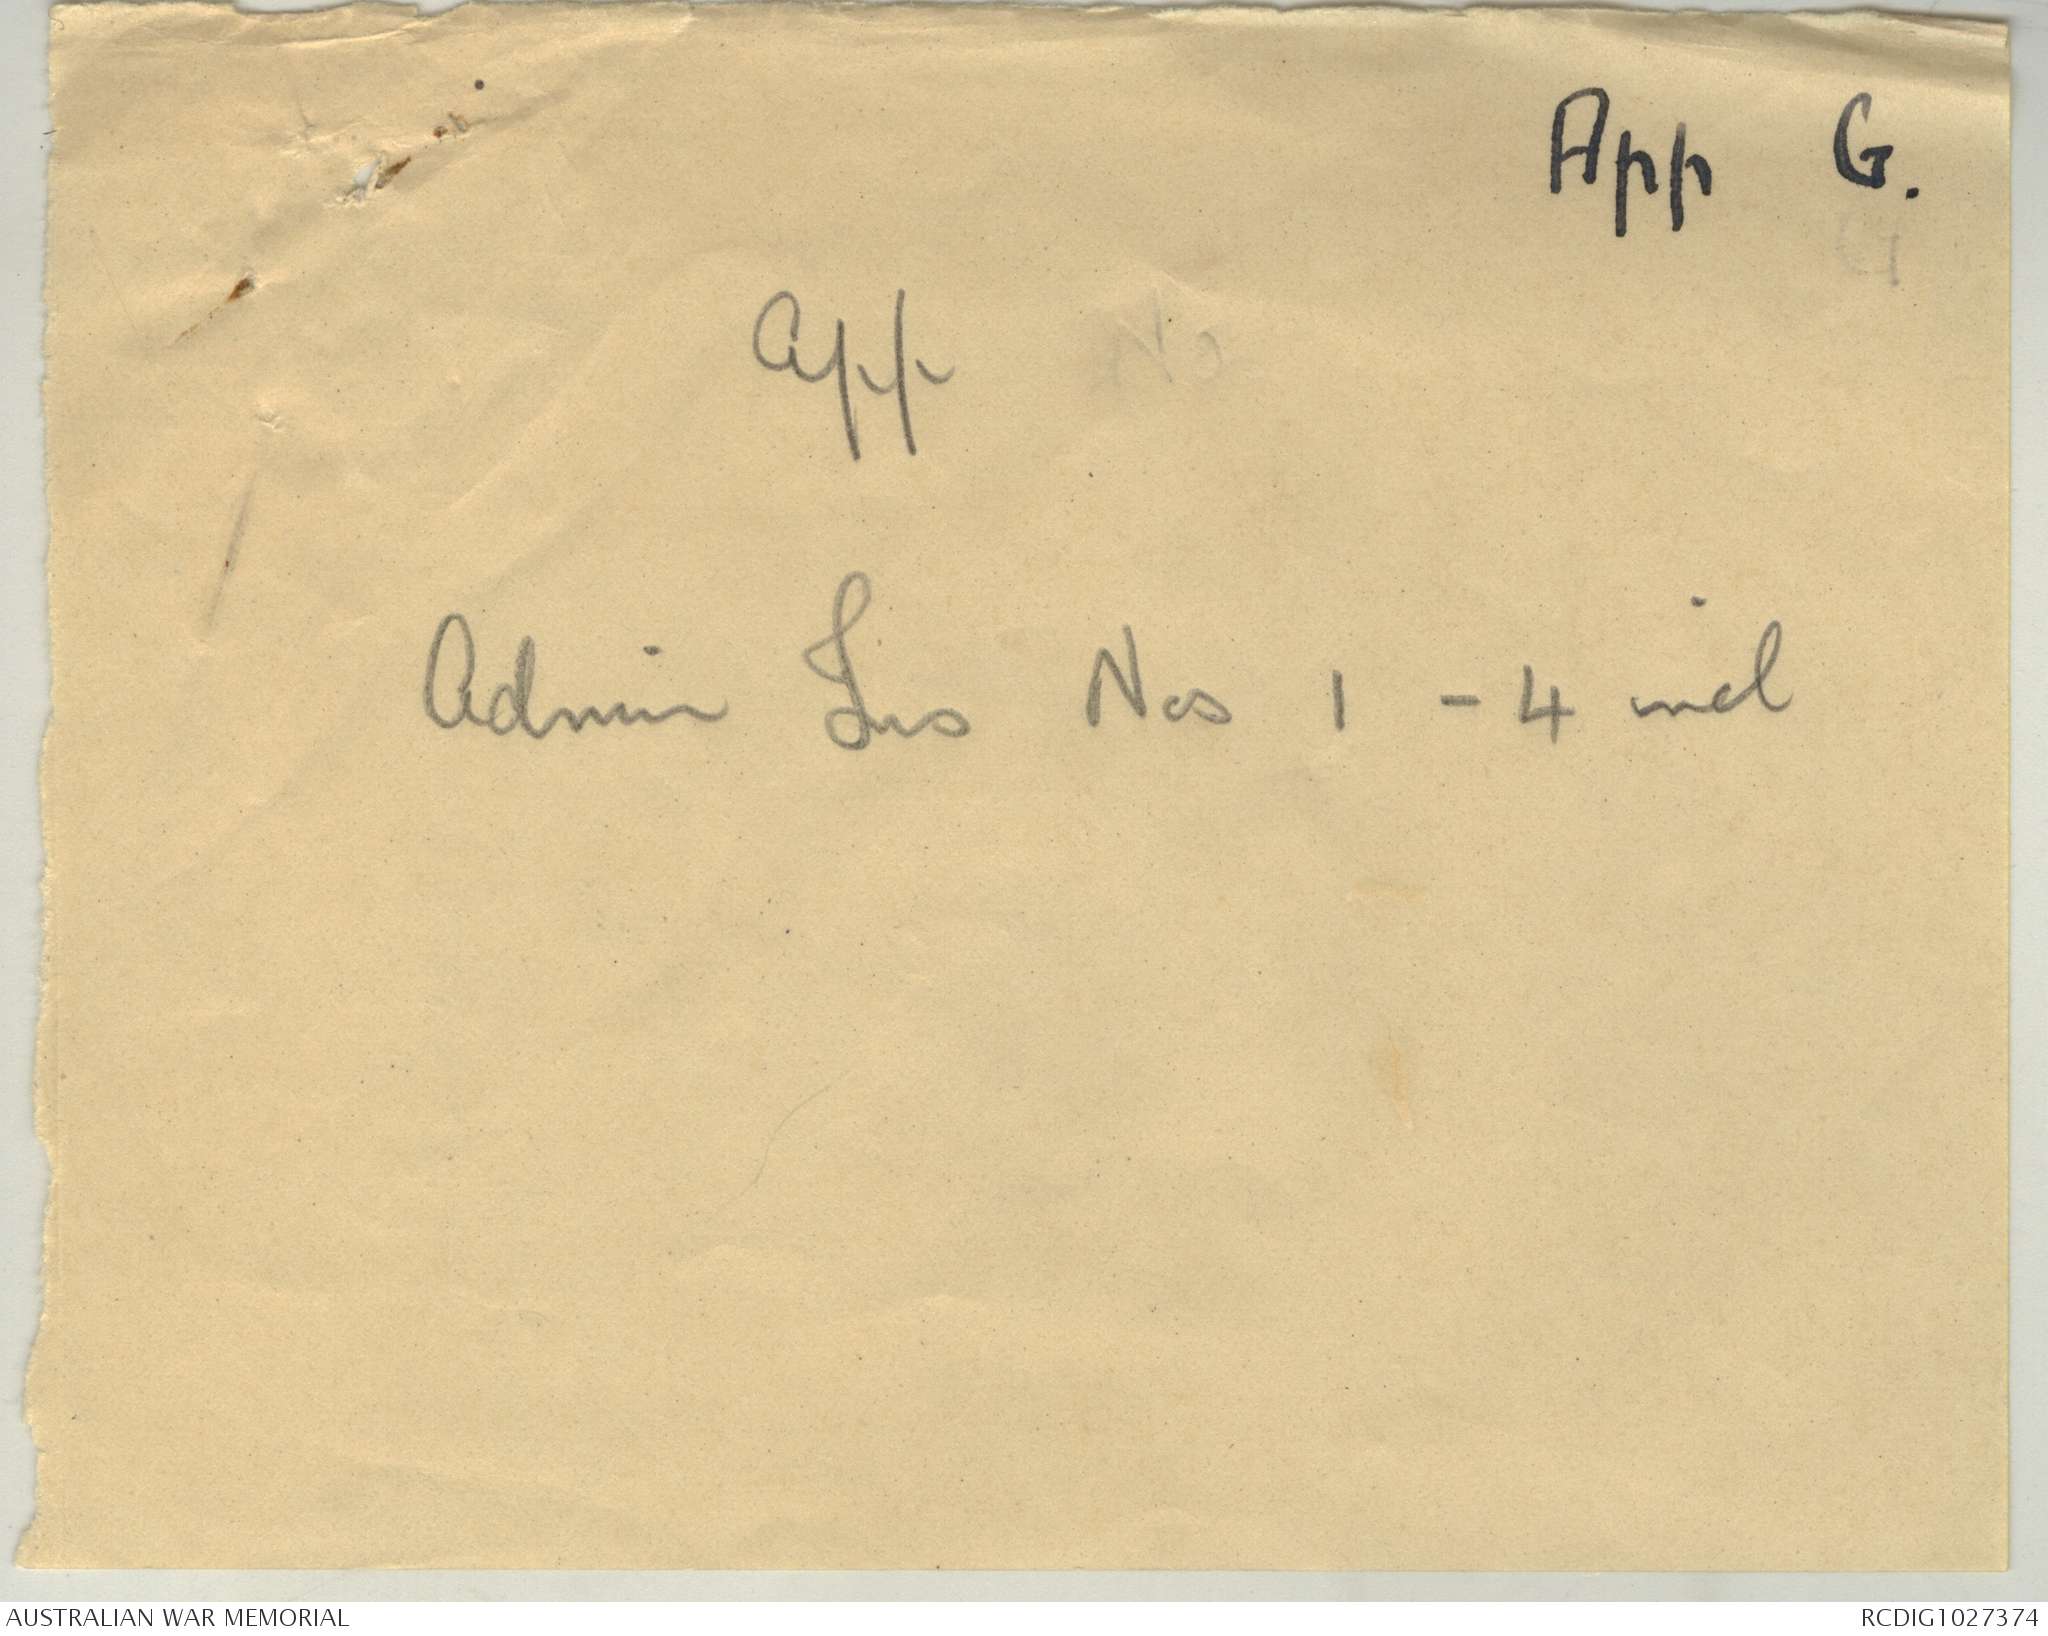 App G.
App
Admin Ins Nos 1 - 4 incl
AUSTRALIAN WAR MEMORIAL
RCDIG1027374